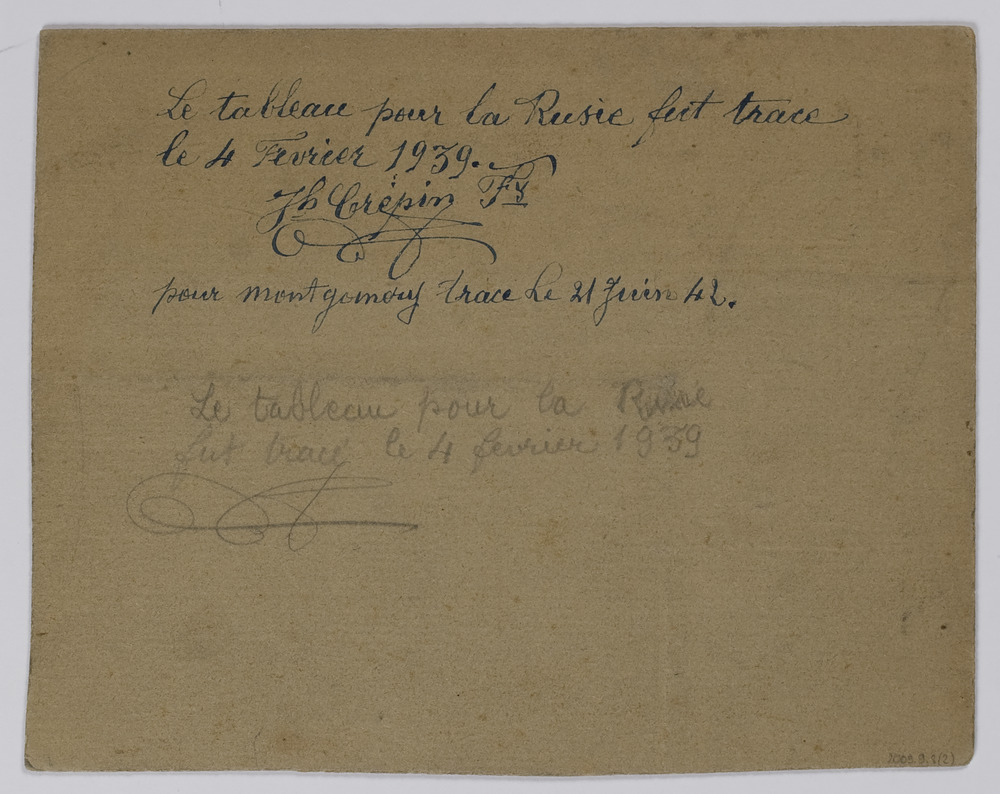 Le tableau pour la Rusie fut trace
le 4 Fevrier 1939.
Jh Crépin Fy
pour montgomouy trace Le 21 Juin 42.
Le tableau pour la Rusie
fut tracé le 4 fevrier 1939
2009.9.2(2)